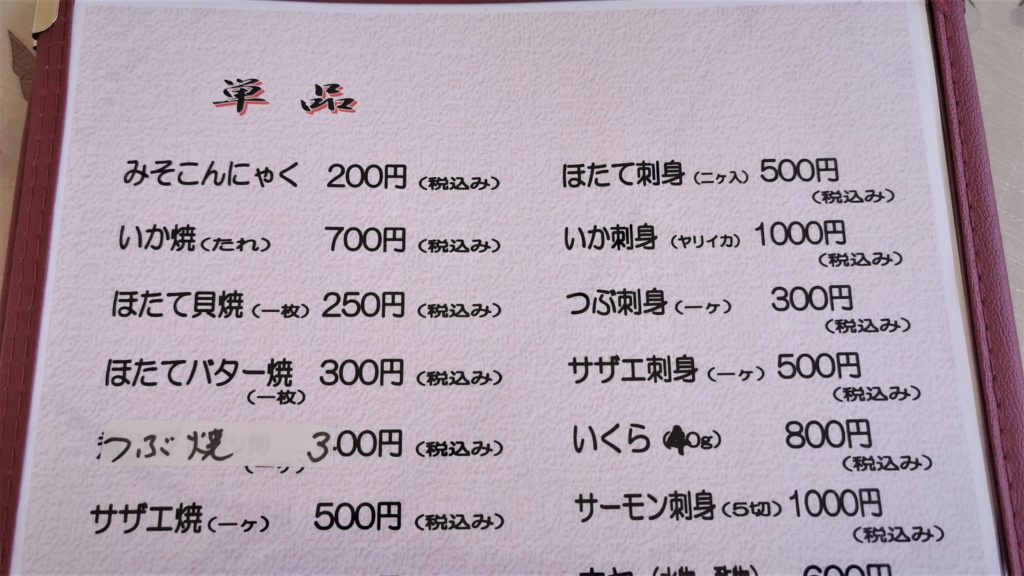 単品
みそこんにゃく 200円(税込み)
いか焼(たれ) 700円(税込み)
ほたて貝焼(一枚) 250円(税込み)
ほたてバター焼 300円(税込み)
(一枚)
つぶ焼 300円(税込み)
サザエ焼(一ヶ) 500円(税込み)
ほたて刺身(二ヶ入) 500円
(税込み)
いか刺身(ヤリイカ) 1000円
(税込み)
つぶ刺身(一ヶ) 300円
(税込み)
サザエ刺身(一ヶ) 500円
(税込み)
いくら(40g) 800円
(税込み)
サーモン刺身(5切) 1000円
(税込み)
600円